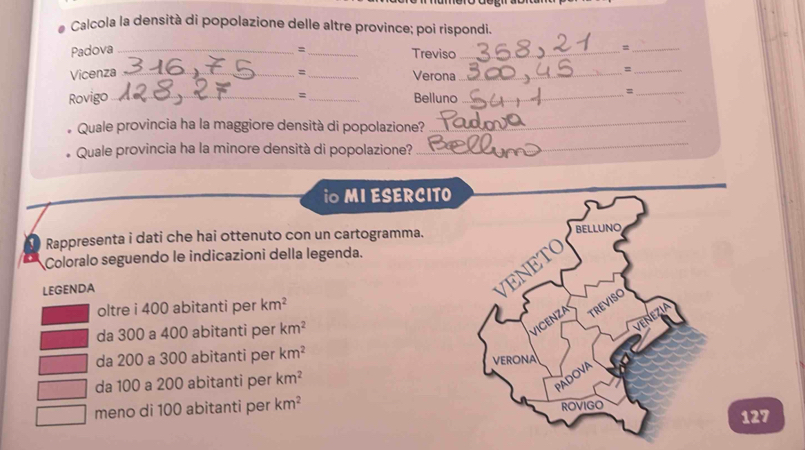 Calcola la densità di popolazione delle altre province; poi rispondi.
Padova = Treviso 358,21 =
Vicenza 316,75 = Verona 300,45 =
Rovigo 128,27 = Belluno 54,1 =
Quale provincia ha la maggiore densità di popolazione? Padova
Quale provincia ha la minore densità di popolazione? Bellumo
io MI ESERCITO
1 Rappresenta i dati che hai ottenuto con un cartogramma.
Coloralo seguendo le indicazioni della legenda.
LEGENDA
oltre i 400 abitanti per km²
da 300 a 400 abitanti per km²
da 200 a 300 abitanti per km²
da 100 a 200 abitanti per km²
meno di 100 abitanti per km²
VENETO
BELLUNO
TREVISO
VICENZA
VENEZIA
VERONA
PADOVA
ROVIGO
127